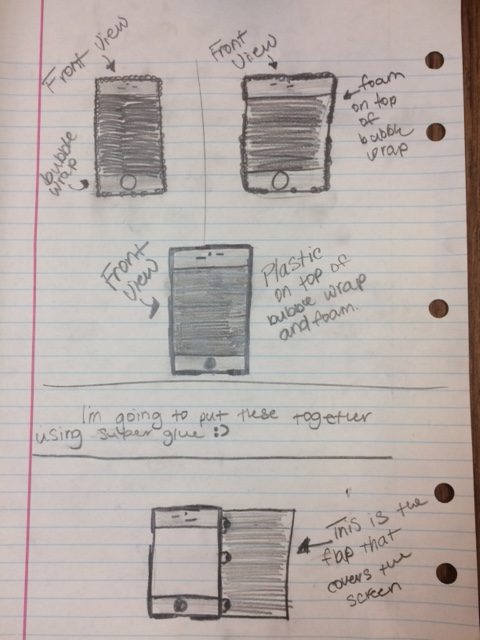 Front view
bubble
wrap
Front
View
foam
on top
of
bubble
wrap
Front
View
Plastic
on top of
bubble wrap
and foam.
I'm going to put these together
using super glue :)
This is the
flap that
covers the
screen